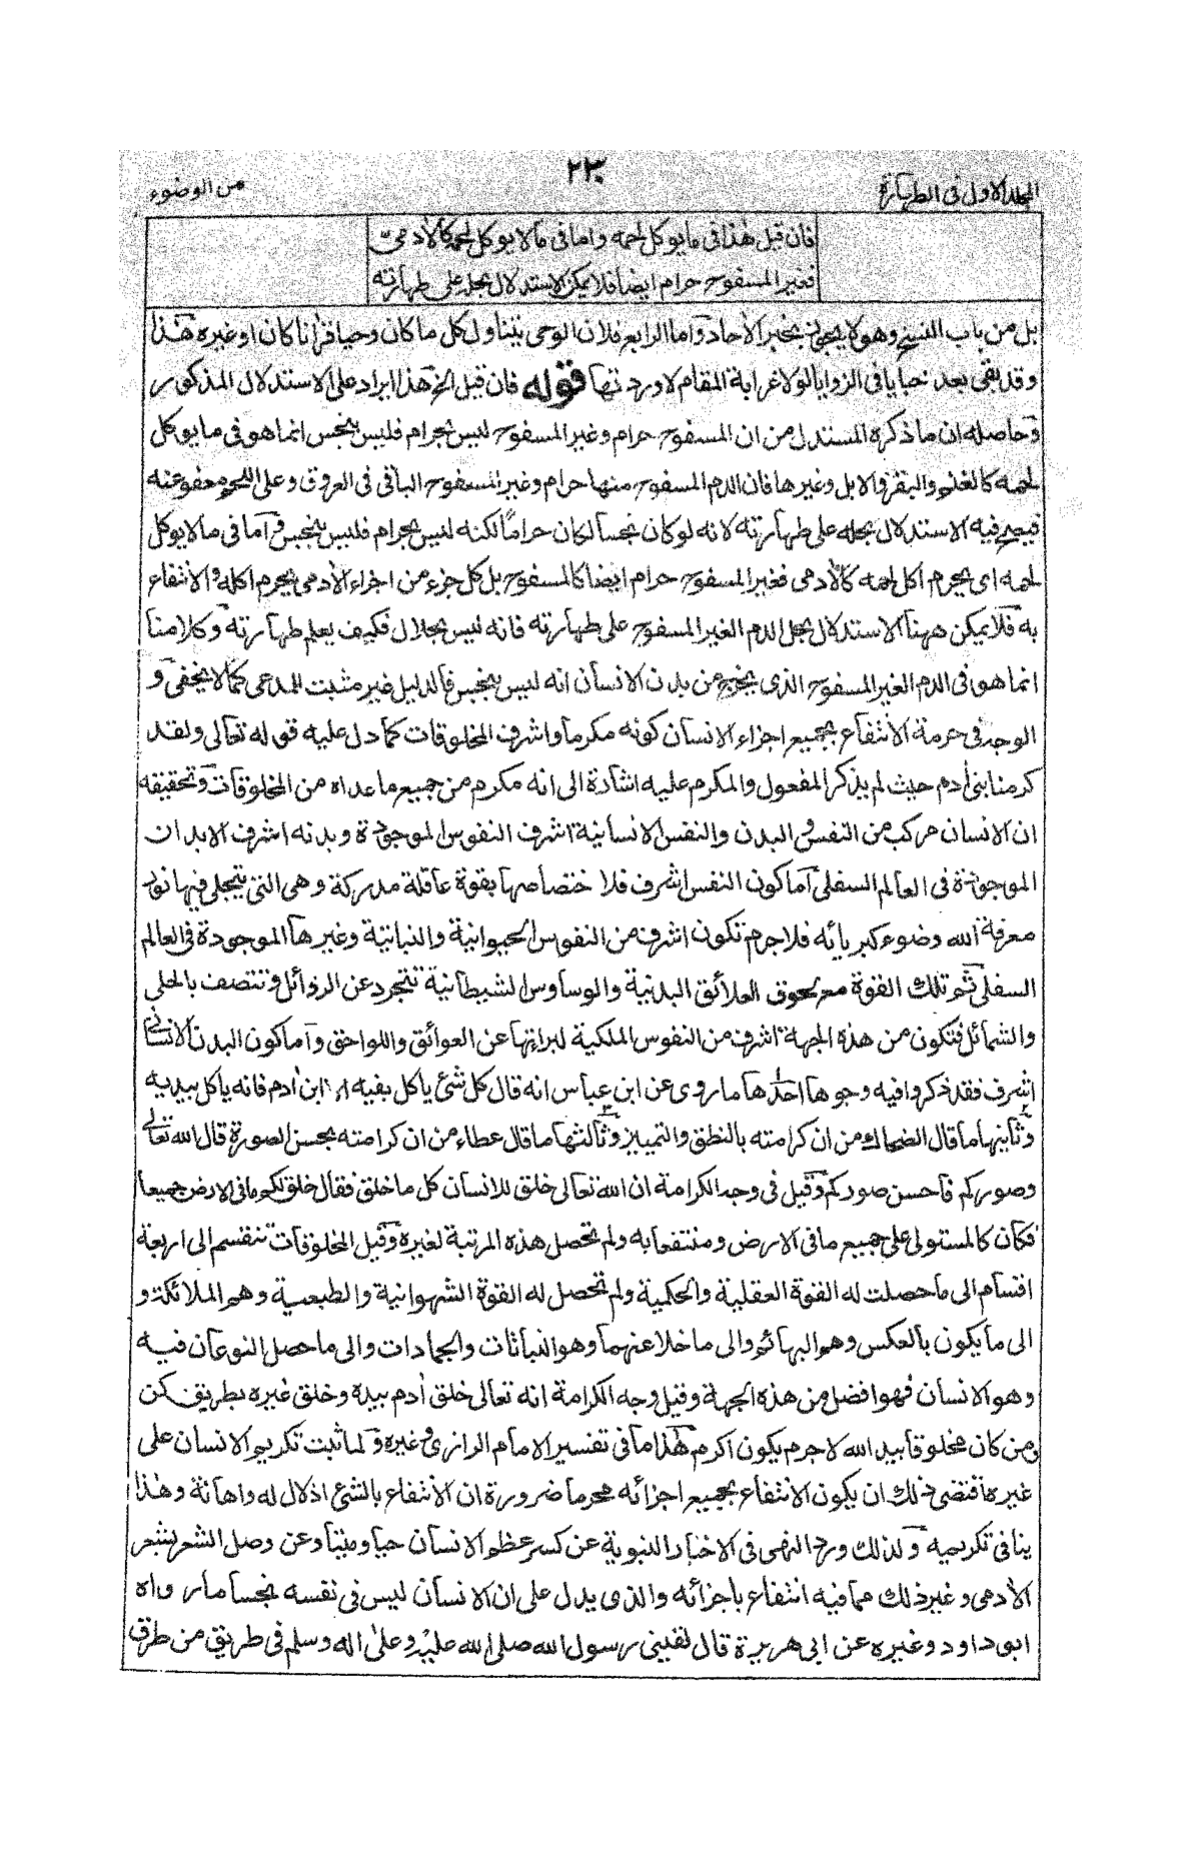 المجلد الاول فى الطهارة
٢٣٠
من الوضوء
فان قيل هذا فى ما يوكل لحمه واما فى ما لا يوكل لحمه كالآدمى
فغير المسفوح حرام ايضا فلا يمكن الاستدلال بحله على طهارته
بل من باب النسخ وهو لا يجوز بخبر الآحاد واما الرابع فلان الوحى يتناول كل ما كان وحيا قرأنا كان او غيره هذا
وقد بقى بعد خبايا فى الزوايا لولا غرابة المقام لاوردتها قوله فان قيل الخ هذا ايراد على الاستدلال المذكور
وحاصله ان ما ذكره المستدل من ان المسفوح حرام وغير المسفوح ليس بحرام فليس بنجس انما هو فى ما يوكل
لحمه كالغنم والبقر والابل وغيرها فان الدم المسفوح منها حرام وغير المسفوح الباقى فى العروق وعلى اللحم معفو عنه
فيصح فيه الاستدلال بحله على طهارته لانه لو كان نجسا لكان حراما لكنه ليس بحرام فليس بنجس واما فى ما لا يوكل
لحمه اى يحرم اكل لحمه كالآدمى فغير المسفوح حرام ايضا كالمسفوح بل كل جزء من اجزاء الآدمى يحرم اكله والانتفاع
به فلا يمكن ههنا الاستدلال بحل الدم الغير المسفوح على طهارته فانه ليس بحلال فكيف يعلم طهارته وكلامنا
انما هو فى الدم الغير المسفوح الذى يخرج من بدن الانسان انه ليس بنجس فالدليل غير مثبت للمدعى كما لا يخفى و
الوجه فى حرمة الانتفاع بجميع اجزاء الانسان كونه مكرما واشرف المخلوقات كما دل عليه قوله تعالى ولقد
كرمنا بنى أدم حيث لم يذكر المفعول والمكرم عليه اشارة الى انه مكرم من جميع ما عداه من المخلوقات وتحقيقه
ان الانسان مركب من النفس والبدن والنفس الانسانية اشرف النفوس الموجودة وبدنه اشرف الابدان
الموجودة فى العالم السفلى اما كون النفس اشرف فلا ختصاصها بقوة عاقلة مدركة وهى التى يتجلى فيها نور
معرفة الله وضوء كبريائه فلا جرم تكون اشرف من النفوس الحيوانية والنباتية وغيرها الموجودة فى العالم
السفلى ثم تلك القوة مع لحوق العلائق البدنية والوساوس الشيطانية تتجرد عن الرذائل وتتصف بالحلى
والشمائل فتكون من هذه الجهة اشرف من النفوس الملكية لبراءتها عن العوائق واللواحق واما كون البدن الانسانى
اشرف فقد ذكروا فيه وجوها احدها ما روى عن ابن عباس انه قال كل شئ ياكل بفيه الا ابن أدم فانه ياكل بيديه
وثانيها ما قال الضحاك من ان كرامته بالنطق والتمييز وثالثها ما قال عطاء من ان كرامته بحسن الصورة قال الله تعالى
وصوركم فاحسن صوركم وقيل فى وجه الكرامة ان الله تعالى خلق للانسان كل ما خلق فقال خلق لكم ما فى الارض جميعا
فكان كالمستولى على جميع ما فى الارض ومنتفعا به ولم تحصل هذه المرتبة لغيره وقيل المخلوقات تنقسم الى اربعة
اقسام الى ما حصلت له القوة العقلية والحكمية ولم تحصل له القوة الشهوانية والطبعية وهم الملائكة و
الى ما يكون بالعكس وهو البهائم والى ما خلا عنهما وهو النباتات والجمادات والى ما حصل النوعان فيه
وهو الانسان فهو افضل من هذه الجهة وقيل وجه الكرامة انه تعالى خلق أدم بيده وخلق غيره بطريق كن
ومن كان مخلوقا بيد الله لا جرم يكون اكرم هذا ما فى تفسير الامام الرازى وغيره ولما ثبت تكريم الانسان على
غيره اقتضى ذلك ان يكون الانتفاع بجميع اجزائه محرما ضرورة ان الانتفاع بالشئ اذلال له واهانة وهذا
ينافى تكريمه ولذلك ورد النهى فى الاخبار النبوية عن كسر عظم الانسان حيا وميتا وعن وصل الشعر بشعر
الآدمى وغير ذلك مما فيه انتفاع باجزائه والذى يدل على ان الانسان ليس فى نفسه بنجس ما رواه
ابو داود وغيره عن ابى هريرة قال لقينى رسول الله صلى الله عليه وعلى أله وسلم فى طريق من طرق